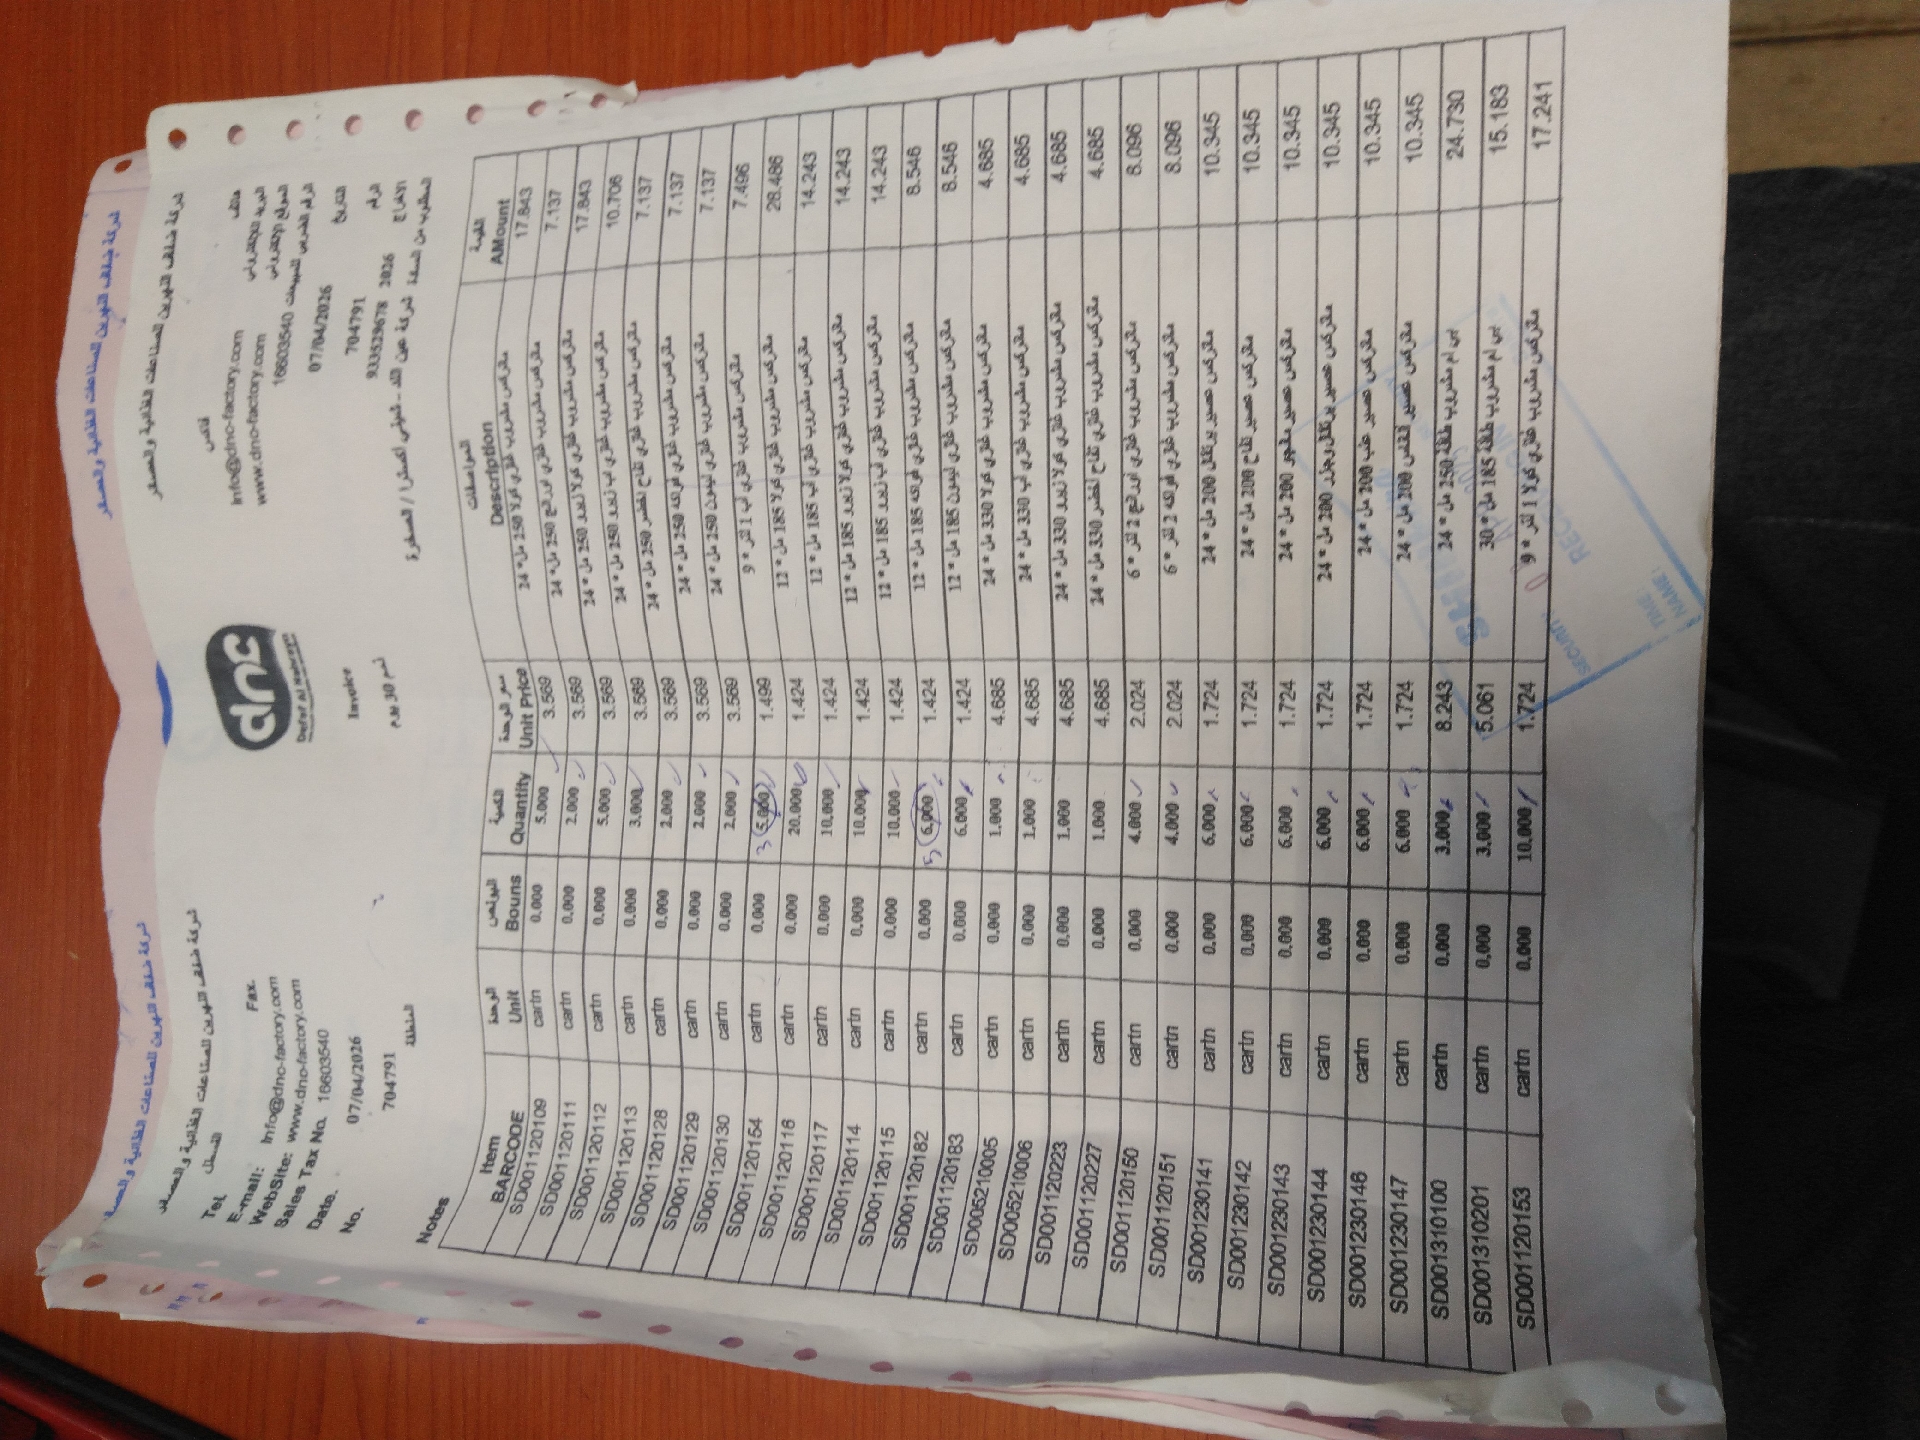 شركة ضفاف النهرين للصناعات الغذائية والعصائر
شركة ضفاف النهرين للصناعات الغذائية والعصائر
شركة ضفاف النهرين للصناعات الغذائية والعصائر
شركة ضفاف النهرين للصناعات الغذائية والعصائر
Tel
Fax.
فاكس
هاتف
E-mail: Info@dnc-factory.com
Info@dnc-factory.com البريد الالكتروني
WebSite: www.dnc-factory.com
www.dnc-factory.com الموقع الالكتروني
Sales Tax No. 16603540
16603540 الرقم الضريبي للمبيعات
Date. 07/04/2026
07/04/2026 التاريخ
No. 704791
704791 الرقم
dnc
Defaf Al Nahreen
Invoice
933529678 2026
ذمم 30 يوم
المنطقة
Notes
Item BARCODE | الوحدة Unit | البونص Bouns | الكمية Quantity | سعر الوحدة Unit Price | المواصفات Description | القيمة AMount
SD001120109 cartn 0.000 5.000 3.569 ماتركس مشروب غازي كولا 250 مل * 24 17.843
SD001120111 cartn 0.000 2.000 3.569 ماتركس مشروب غازي اورانج 250 مل * 24 7.137
SD001120112 cartn 0.000 5.000 3.569 ماتركس مشروب غازي كولا زيرو 250 مل * 24 17.843
SD001120113 cartn 0.000 3.000 3.569 ماتركس مشروب غازي اب زيرو 250 مل * 24 10.706
SD001120128 cartn 0.000 2.000 3.569 ماتركس مشروب غازي تفاح اخضر 250 مل * 24 7.137
SD001120129 cartn 0.000 2.000 3.569 ماتركس مشروب غازي فواكه 250 مل * 24 7.137
SD001120130 cartn 0.000 2.000 3.569 ماتركس مشروب غازي ليمون 250 مل * 24 7.137
SD001120154 cartn 0.000 3 5.000 1.499 ماتركس مشروب غازي اب 1 لتر * 9 7.496
SD001120116 cartn 0.000 20.000 1.424 ماتركس مشروب غازي كولا 185 مل * 12 28.486
SD001120117 cartn 0.000 10.000 1.424 ماتركس مشروب غازي اب 185 مل * 12 14.243
SD001120114 cartn 0.000 10.000 1.424 ماتركس مشروب غازي كولا زيرو 185 مل * 12 14.243
SD001120115 cartn 0.000 10.000 1.424 ماتركس مشروب غازي اب زيرو 185 مل * 12 14.243
SD001120182 cartn 0.000 5 6.000 1.424 ماتركس مشروب غازي فواكه 185 مل * 12 8.546
SD001120183 cartn 0.000 6.000 1.424 ماتركس مشروب غازي ليمون 185 مل * 12 8.546
SD005210005 cartn 0.000 1.000 4.685 ماتركس مشروب غازي كولا 330 مل * 24 4.685
SD005210006 cartn 0.000 1.000 4.685 ماتركس مشروب غازي اب 330 مل * 24 4.685
SD001120223 cartn 0.000 1.000 4.685 ماتركس مشروب غازي كولا زيرو 330 مل * 24 4.685
SD001120227 cartn 0.000 1.000 4.685 ماتركس مشروب غازي تفاح اخضر 330 مل * 24 4.685
SD001120150 cartn 0.000 4.000 2.024 ماتركس مشروب غازي اورانج 2 لتر * 6 8.096
SD001120151 cartn 0.000 4.000 2.024 ماتركس مشروب غازي فواكه 2 لتر * 6 8.096
SD001230141 cartn 0.000 6.000 1.724 ماتركس عصير برتقال 200 مل * 24 10.345
SD001230142 cartn 0.000 6.000 1.724 ماتركس عصير تفاح 200 مل * 24 10.345
SD001230143 cartn 0.000 6.000 1.724 ماتركس عصير مانجو 200 مل * 24 10.345
SD001230144 cartn 0.000 6.000 1.724 ماتركس عصير برتقال وجزر 200 مل * 24 10.345
SD001230146 cartn 0.000 6.000 1.724 ماتركس عصير عنب 200 مل * 24 10.345
SD001230147 cartn 0.000 6.000 1.724 ماتركس عصير اناناس 200 مل * 24 10.345
SD001310100 cartn 0.000 3.000 8.243 بي ام مشروب طاقة 250 مل * 24 24.730
SD001310201 cartn 0.000 3.000 5.061 بي ام مشروب طاقة 185 مل * 30 15.183
SD001120153 cartn 0.000 10.000 1.724 ماتركس مشروب غازي كولا 1 لتر * 9 17.241
SECURITY
TIME:
NAME: